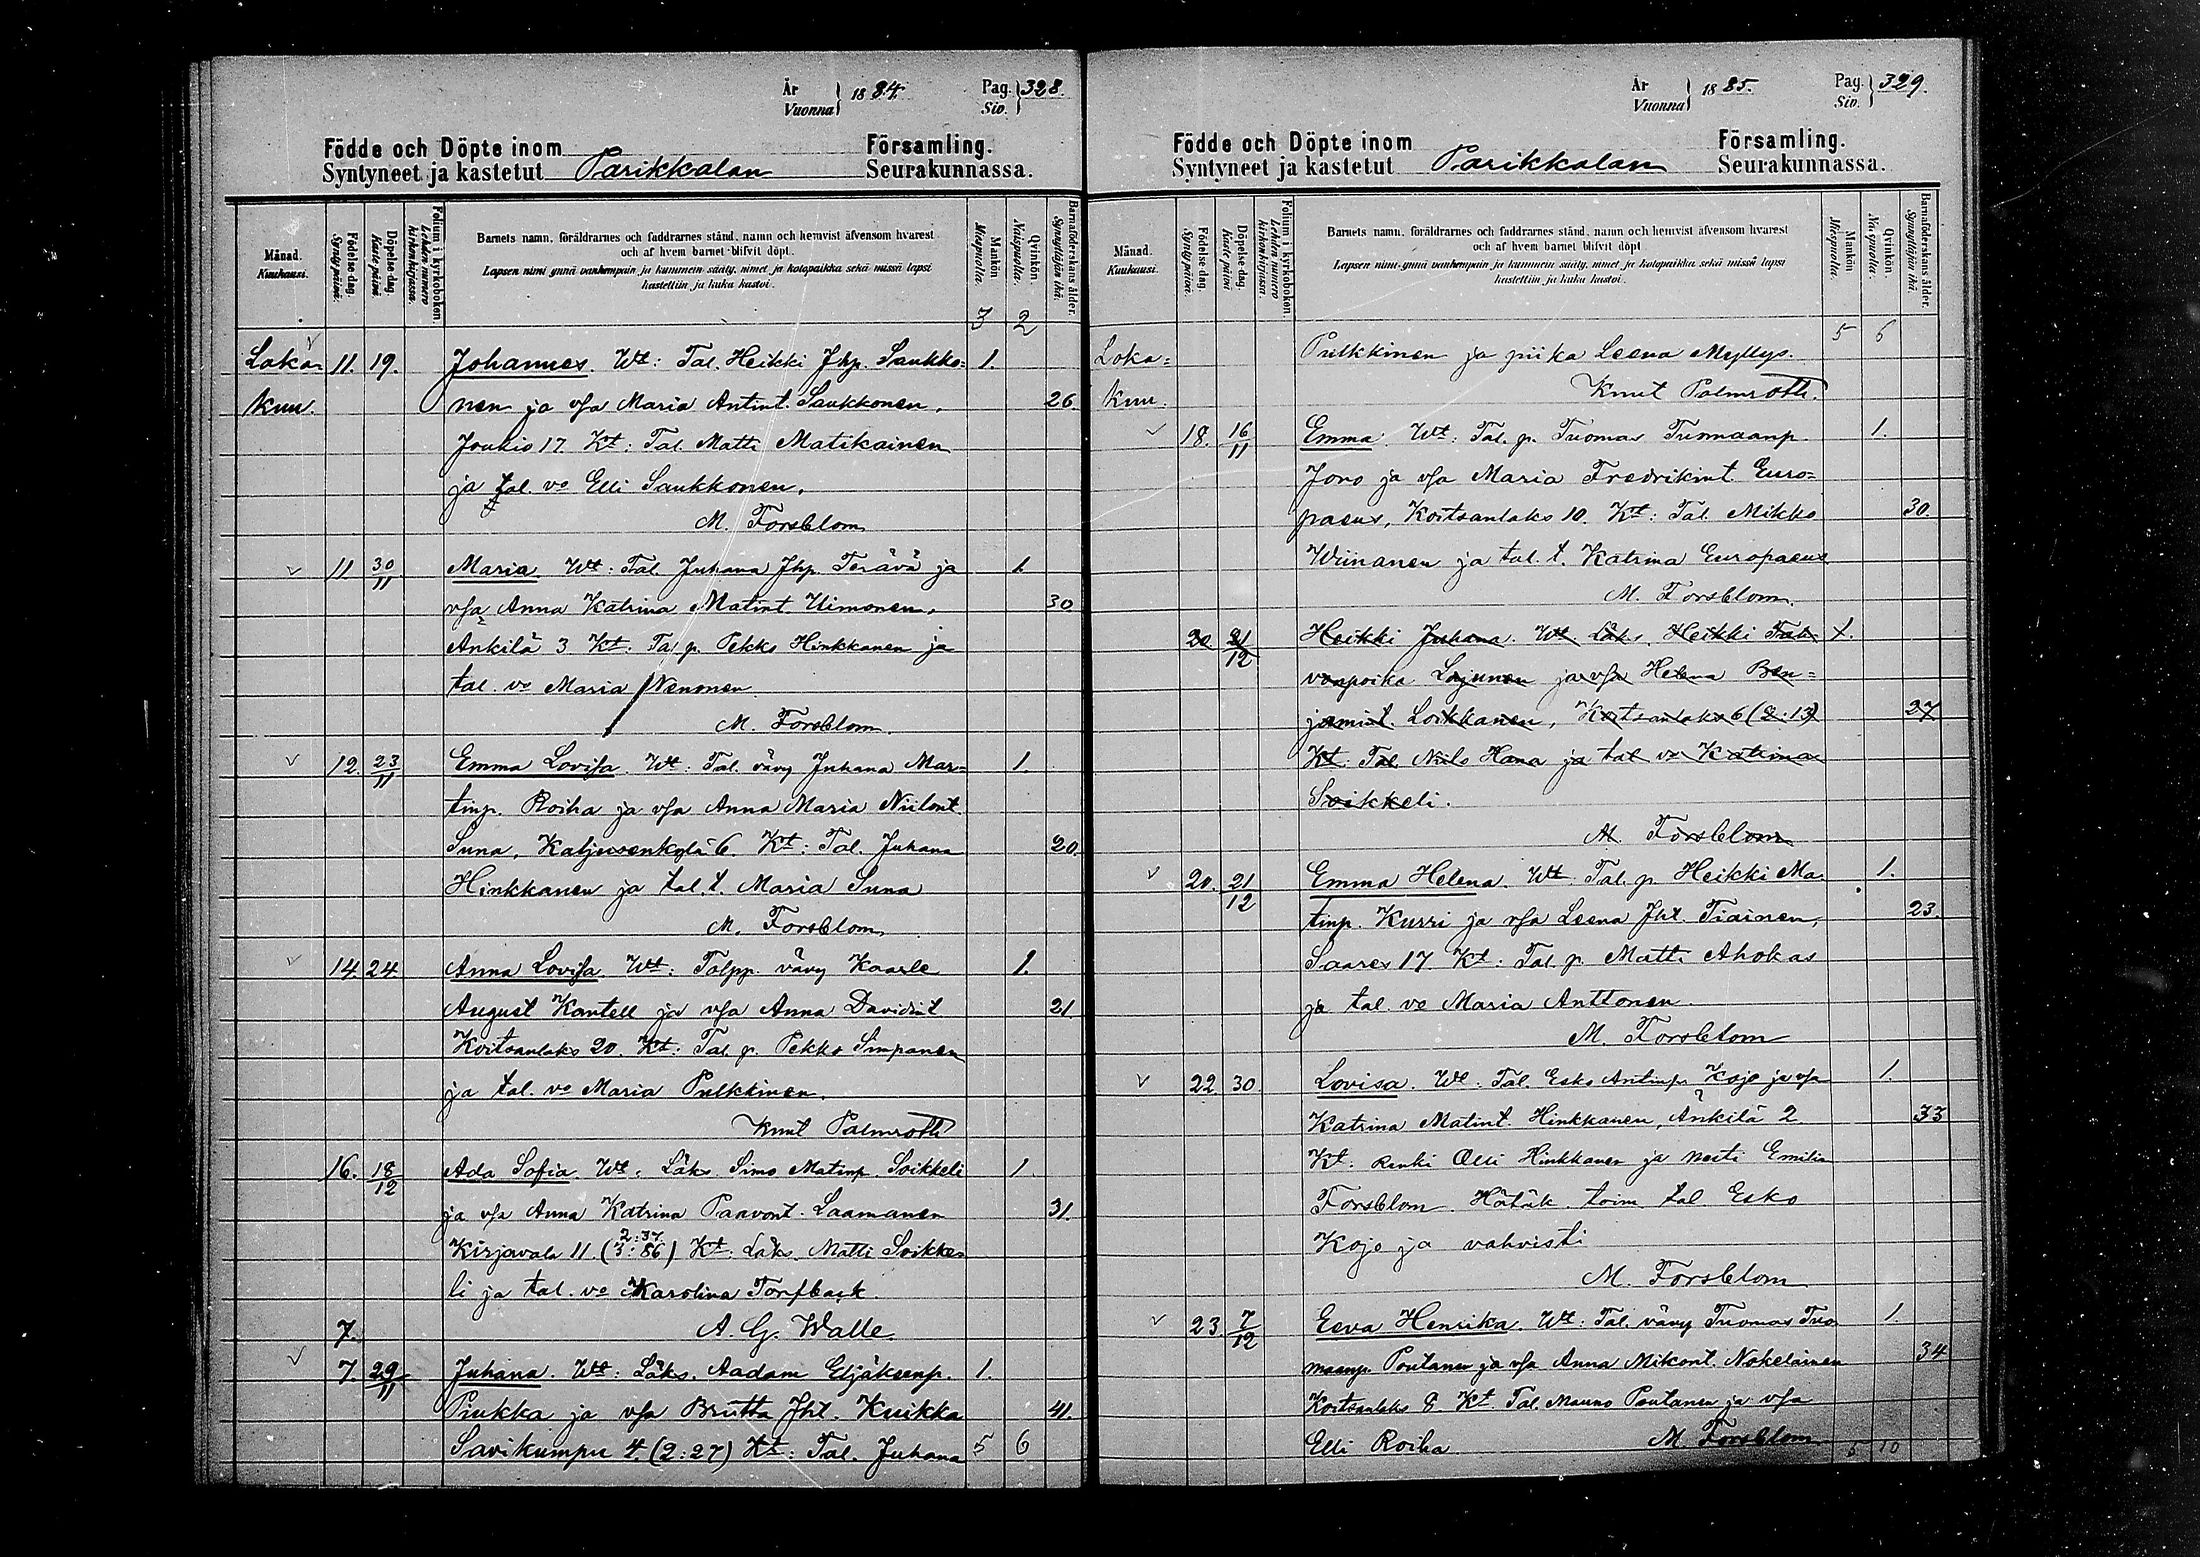 År
Vuonna } 1884. Pag.
Siv. } 328.
Födde och Döpte inom
Syntyneet ja kastetut Parikkalan Församling.
Seurakunnassa.
Månad.
Kuukausi.
Födelse-dag.
Syntypäivä.
Döpelse-dag.
Kaste päivä.
Folium i kyrkoboken.
Lehden numero
kirkonkirjassa.
Barnets namn, föräldrarnes och faddrarnes stånd, namn och hemvist äfvensom hvarest
och af hvem barnet blifvit döpt.
Lapsen nimi ynnä vanhempain ja kummein sääty, nimet ja kotopaikka sekä missä lapsi
kastettiin ja kuka kastoi.
Mankön.
Miespuolta.
Qvinkön.
Naispuolta.
Barnaföderskans ålder.
Synnyttäjän ikä.
3 2
Loka= 11. 19. Johannes. Wt: Tal. Heikki Jhp. Saukko= 1.
kuu. nen ja vfa Maria Antint. Saukkonen, 26.
Joukio 17 Kt: Tal. Matti Matikainen
ja tal. vo Elli Saukkonen.
M. Forsblom
11 30/11 Maria. Wt: Tal. Juhana Jhp. Terävä ja 1.
vfa Anna Katrina Matint. Uimonen, 30
Ankilä 3 Kt: Tal p. Pekko Hinkkanen ja
tal. vo Maria Nenonen
M. Forsblom.
12. 23/11 Emma Lovisa. Wt: Tal. vävy Juhana Mar= 1.
tinp. Roiha ja vfa Anna Maria Niilont.
Suna, Katjuusenkylä 6. Kt: Tal. Juhana 20.
Hinkkanen ja tal. t. Maria Suna
M. Forsblom.
14 24 Anna Lovisa. Wt: Talpp. vävy Kaarle 1.
August Kantell ja vfa Anna Davidint 21
Koitsanlaks 20. Kt: Tal. p. Pekko Simpanen
ja tal. vo Maria Pulkkinen.
Knut Palmroth
16. 18/12 Ada Sofia. Wt: Läks. Simo Matinp. Soikkeli 1.
ja vfa Anna Katrina Paavont. Laamanen 31.
2:37.
Kirjavala 11. (3:86) Kt: Läks. Matti Soikke=
li ja tal. vo Karolina Torfback.
7. A. G. Walle
7. 29/11 Juhana. Wt: Läks. Aadam Eljäksenp. 1.
Piukka ja vfa Britta Jht. Kuikka 41.
Savikumpu 4. (2:27) Kt: Tal. Juhana 5 6
År
Vuonna } 1885. Pag.
Siv. } 329.
Födde och Döpte inom
Syntyneet ja kastetut Parikkalan Församling.
Seurakunnassa.
Månad.
Kuukausi.
Födelse-dag.
Syntypäivä.
Döpelse-dag.
Kaste päivä
Folium i kyrkoboken.
Lehden numero
kirkonkirjassa.
Barnets namn, föräldrarnes och faddrarnes stånd, namn och hemvist äfvensom hvarest
och af hvem barnet blifvit döpt.
Lapsen nimi ynnä vanhempain ja kummein sääty, nimet ja kotopaikka sekä missä lapsi
kastettiin ja kuka kastoi.
Mankön
Miespuolta.
Qvinkön.
Naispuolta.
Barnaföderskans ålder.
Synnyttäjän ikä.
Loka= Pulkkinen ja piika Leena Myllys. 5 6
kuu. Knut Palmroth.
18. 16/11 Emma. Wt: Tal. p. Tuomas Tuomaanp. 1.
Joro ja vfa Maria Fredrikint. Euro=
paeus, Koitsanlaks 10. Kt: Tal. Mikko 30.
Wiinanen ja tal. t. Katrina Europaeus
M. Forsblom.
20 21/12 Heikki Juhana. Wt. Läks. Heikki Tal. 1.
vonpoika Lajunen ja vfa Helena Ben=
jamint. Loikkanen, Koitsanlaks 6 (2:13) 27
Kt. Tal. Niilo Hana ja tal vo Katrina
Soikkeli.
M Forsblom
20. 21/12 Emma Helena. Wt. Tal. p. Heikki Ma= 1.
tinp. Kurri ja vfa Leena Jht. Tiainen, 23.
Saares 17. Kt: Tal. p. Matti Ahokas
ja tal. vo Maria Anttonen.
M. Forsblom
22. 30 Lovisa. Wt: Tal. Esko Antinp. Kojo ja vfa 1.
Katrina Matint. Hinkkanen, Ankilä 2 33
Kt: Renki Olli Hinkkanen ja neiti Emilia
Forsblom. Hätäk. toim. tal. Esko
Kojo ja vahvisti
M. Forsblom
23. 7/12 Eeva Henrika. Wt: Tal. vävy Tuomas Tuo= 1.
maanp. Poutanen ja vfa Anna Mikont. Nokelainen 34
Koitsanlaks 8 Kt Tal. Mauno Poutanen ja vfa
Elli Roiha M. Forsblom 5 10